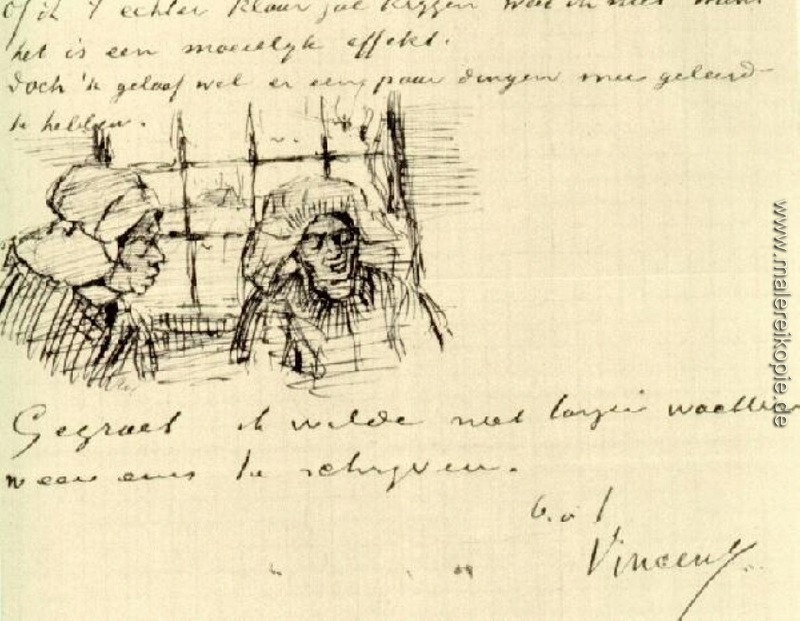 Of ik 't echter klaar zal krijgen weet ik niet want
het is een moeielyk effekt.
Doch 'k geloof wel er een paar dingen mee geleerd
te hebben.
Gegroet ik wilde niet langer wachten
weer eens te schryven.
b. à t
Vincent
www.malereikopie.de